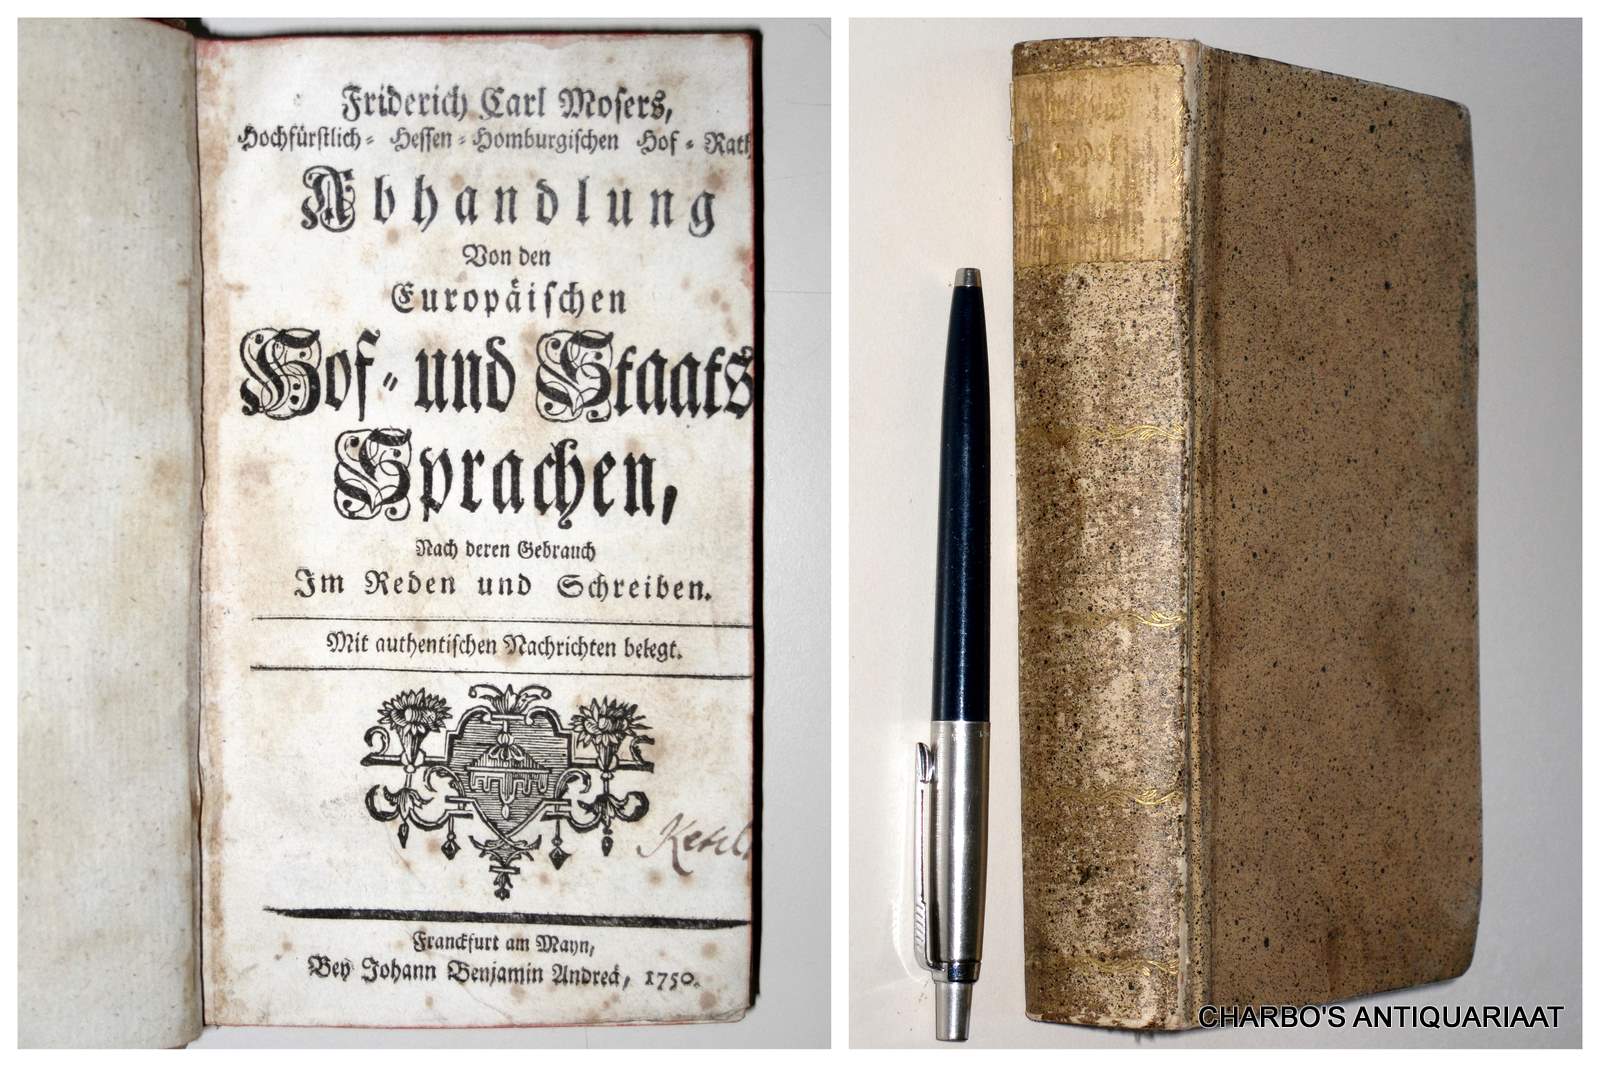 Friderich Carl Mosers,
Hochfürstlich- Hessen-Homburgischen Hof-Rath
Abhandlung
Von den
Europäischen
Hof- und Staats
Sprachen,
Nach deren Gebrauch
Im Reden und Schreiben.
Mit authentischen Nachrichten belegt.
Franckfurt am Mayn,
Bey Johann Benjamin Andreä, 1750.
CHARBO'S ANTIQUARIAAT